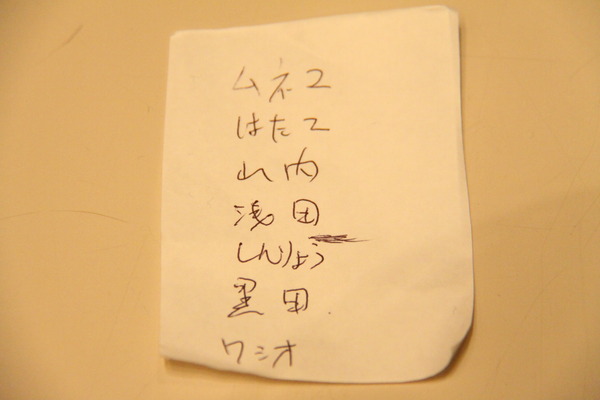 ムネユ
はたて
山内
浅田
しんりょう
黒田
ワシオ